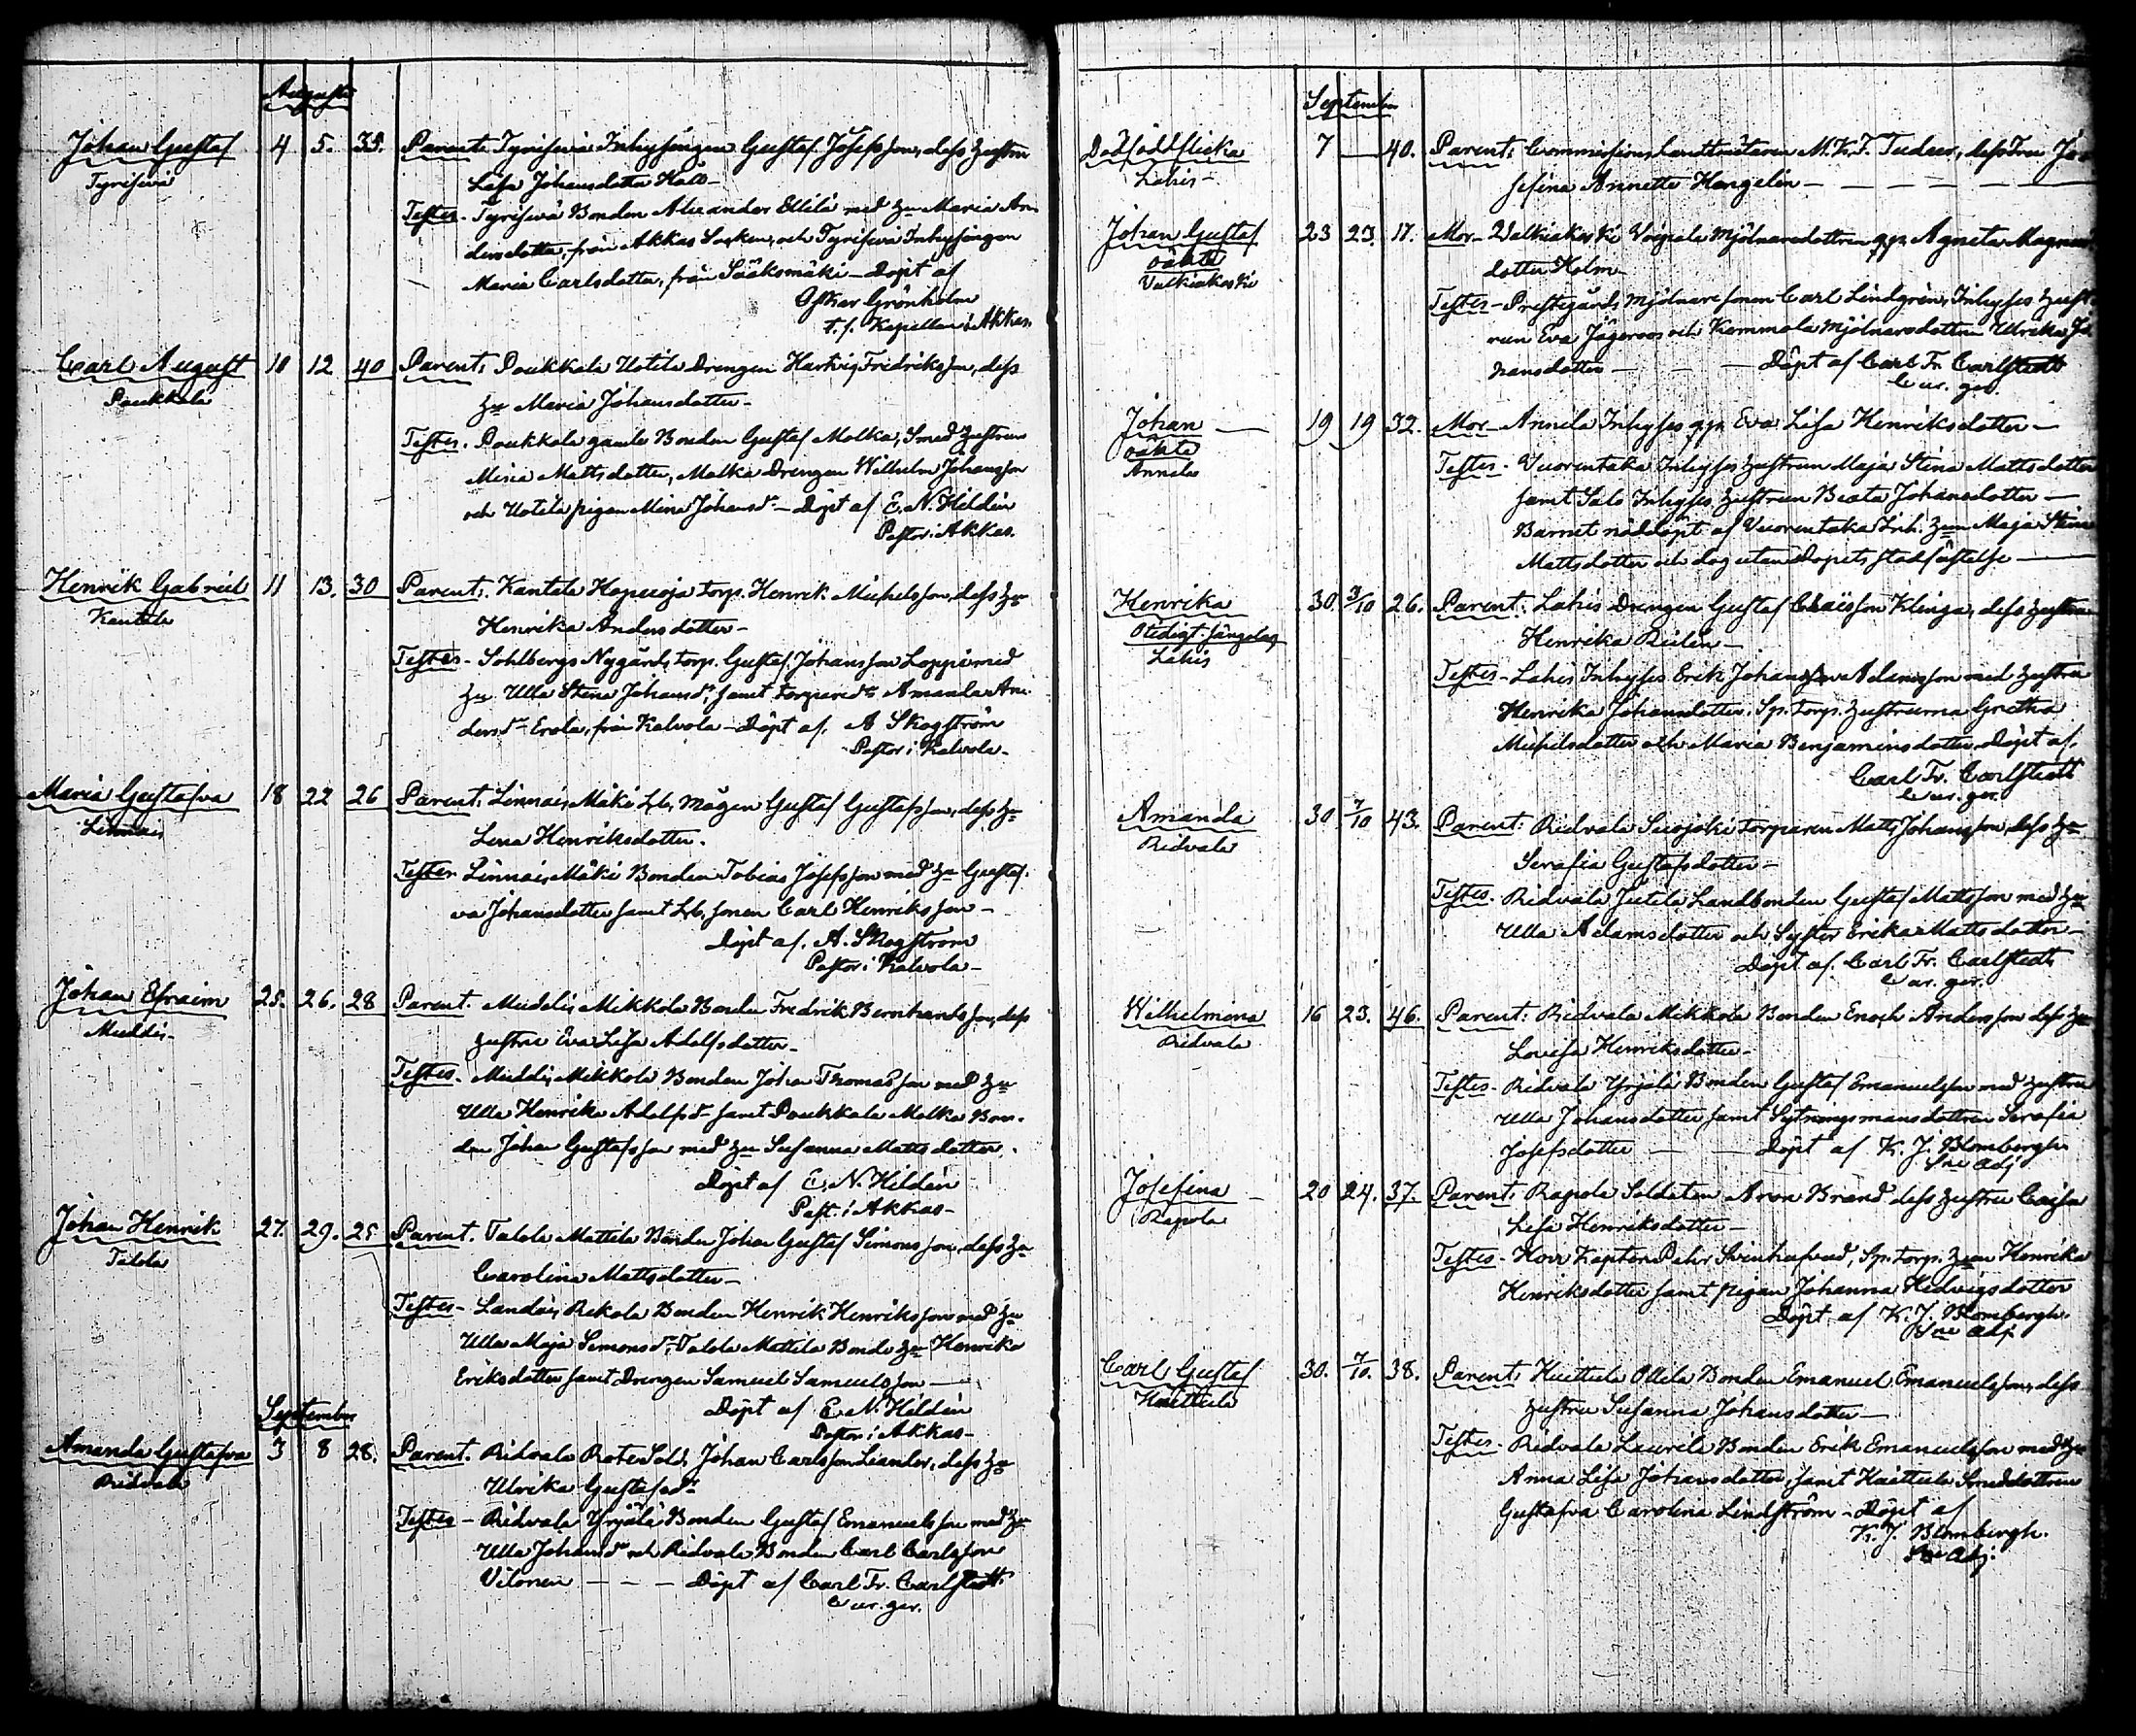 Augusti
Johan Gustaf 4 5. 35. Parent. Tyrisevä Inhysingen Gustaf Josefsson, dess hustru
Tyrisevä Lisa Johansdotter Kall-
Testes- Tyrisevä Bonden Alexander Ellilä med hu Maria An-
dersdotter, från Akkas Socken, och Tyrisevä Inhysingen
Maria Carlsdotter, från Sääksmäki - Döpt af
Oskar Grönholm
t. f. Kapellan i Akkas.
Carl August 10 12 40 Parent. Poukkala Uotila Drengen Hartvig Fredriksson, dess
Poukkala hu Maria Johansdotter-
Testes. Poukkala gamle Bonden Gustaf Molka, Smed hustrun
Maria Mattsdotter, Molka Drengen Wilhelm Johansson
och Uotila pigan Mina Johansdr - Döpt af E. N. Hildén
Pastor i Akkas.
Henrik Gabriel 11 13. 30 Parent. Kantala Hapuoja torp. Henrik Michelsson, dess hu
Kantala Henrika Andersdotter-
Testes- Sohlbergs Nygårds torp. Gustaf Johansson Loppi med
hu Ulla Stina Johansdr, samt torparedr Amanda An-
dersdr Erola, från Kalvola - Döpt af. A Skogström
Pastor i Kalvola-
Maria Gustafva 18 22 26 Parent. Linnais Mäki Lb. mågen Gustaf Gustafsson, dess hu
Linnais Lena Henriksdotter.
Testes Linnais Mäki Bonden Tobias Josefsson med hu Gustaf-
va Johansdotter samt Lb. sonen Carl Henriksson-
Döpt af. A. Skogström
Pastor i Kalvola-
Johan Efraim 25. 26. 28 Parent. Muddis Mikkola Bonden Fredrik Bernhardsson, dess
Muddis- hustru Eva Lisa Adolfsdotter-
Testes. Muddis Mikkola Bonden Johan Thomasson med hu
Ulla Henrika Adolfsdr samt Poukkala Molka Bon-
den Johan Gustafsson med hu Susanna Mattsdotter.
Döpt af E. N. Hildén
Past. i Akkas-
Johan Henrik 27. 29. 25 Parent. Talola Mattila Bonden Johan Gustaf Simonsson, dess hu
Talola Carolina Mattsdotter-
Testes- Landais Rekola Bonden Henrik Henriksson med hu
Ulla Maja Simonsdr, Talola Mattila Bonde hu Henrika
Eriksdotter samt Drengen Samuel Samuelsson-
Döpt af E. N. Hildén
Pastor i Akkas-
September
Amanda Gustafva 3 8 28. Parent. Ridvala Rote Sold. Johan Carlsson Liander, dess hu
Ridvala Ulrika Gustafsdr
Testes- Ridvala Yrjälä Bonden Gustaf Emanuelsson med hu
Ulla Johansdr och Ridvala Bonden Carl Carlsson
Vitonen - - - Döpt af Carl Fr. Carlstedt
Cur. ger.
September
Dödfödd flicka 7 — 40. Parent. Commissions Landtmätaren M. K. F. Tudeer, dess Fru Jo-
Lahis- sefina Annette Hongelin - - - -
Johan Gustaf 23 23. 17. Mor- Valkiakoski Voipala Mjölnaredottren qp. Agneta Magnus-
oäkta dotter Holm-
Valkiakoski
Testes- Prestgårds Mjölnaresonen Carl Lindgren, Inhyses hust-
run Eva Jägerroos och Kemmola Mjölnaredottren Ulrika Jo-
hansdotter - - - Döpt af Carl Fr. Carlstedt
Cur. ger.
Johan — 19 19 32. Mor- Annila Inhyses qp. Eva Lisa Henriksdotter-
oäkta
Annila Testes- Vuorentaka Inhyses hustrun Maja Stina Mattsdotter
samt Salo Inhyses hustrun Beata Johansdotter —
Barnet nöddöpt af Vuorentaka Inh. hun Maja Stina
Mattsdotter och dog utan Dopets stadfästelse —
Henrika 30. 3/10 26. Parent. Lahis Drengen Gustaf Claësson Klinga, dess hustru
Lahis Henrika Rulin-
Testes- Lahis Inhyses Erik Johansson Adamsson med hustru
Henrika Johansdotter. Sp. torp. hustrurna Gretha
Michelsdotter och Maria Benjaminsdotter, Döpt af.
Carl Fr. Carlstedt
Cur. ger.
Amanda 30. 7/10 43. Parent: Ridvala Suojoki torparen Matts Johansson, dess hu
Ridvala Serafia Gustafsdotter-
Testes. Ridvala Jutila Landbonden Gustaf Mattsson med hu
Ulla Adamsdotter och Syster Erika Mattsdotter-
Döpt af. Carl Fr. Carlstedt
Cur. ger.
Wilhelmina 16 23. 46. Parent: Ridvala Mikkola Bonden Enoch Andersson dess hu
Ridvala Lovisa Henriksdotter-
Testes- Ridvala Yrjälä Bonden Gustaf Emanuelsson med hustru
Ulla Johansdotter samt Sytningsmansdottren Serafia
Josefsdotter — — Döpt af K. J. Blombergh.
Sne Adj
Josefina - 20 24. 37. Parent: Rapola Soldaten Aron Brand dess hustru Caisa
Rapola Lisa Henriksdotter-
Testes- Herr Kapten Pehr Svinhufvud, Sp. torp. hun Henrika
Henriksdotter samt pigan Johanna Hedvigsdotter
Döpt af K. J. Blombergh.
Sne Adj.
Carl Gustaf 30. 7/10. 38. Parent: Huittula Ollila Bonden Emanuel Emanuelsson, dess
Huittula hustru Susanna Johansdotter-
Testes- Ridvala Laurila Bonden Erik Emanuelsson med hu
Anna Lisa Johansdotter, samt Huittula Smeddottren
Gustafva Carolina Lindström - Döpt af
K. J. Blombergh.
Sne Adj.